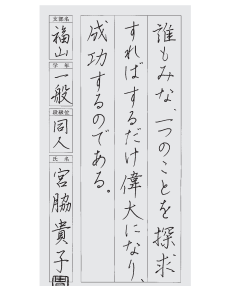 誰もみな、一つのことを探求
すればするだけ偉大になり、
成功するのである。
支部名
福山
学年
一般
段級位
同人
氏名
宮脇貴子